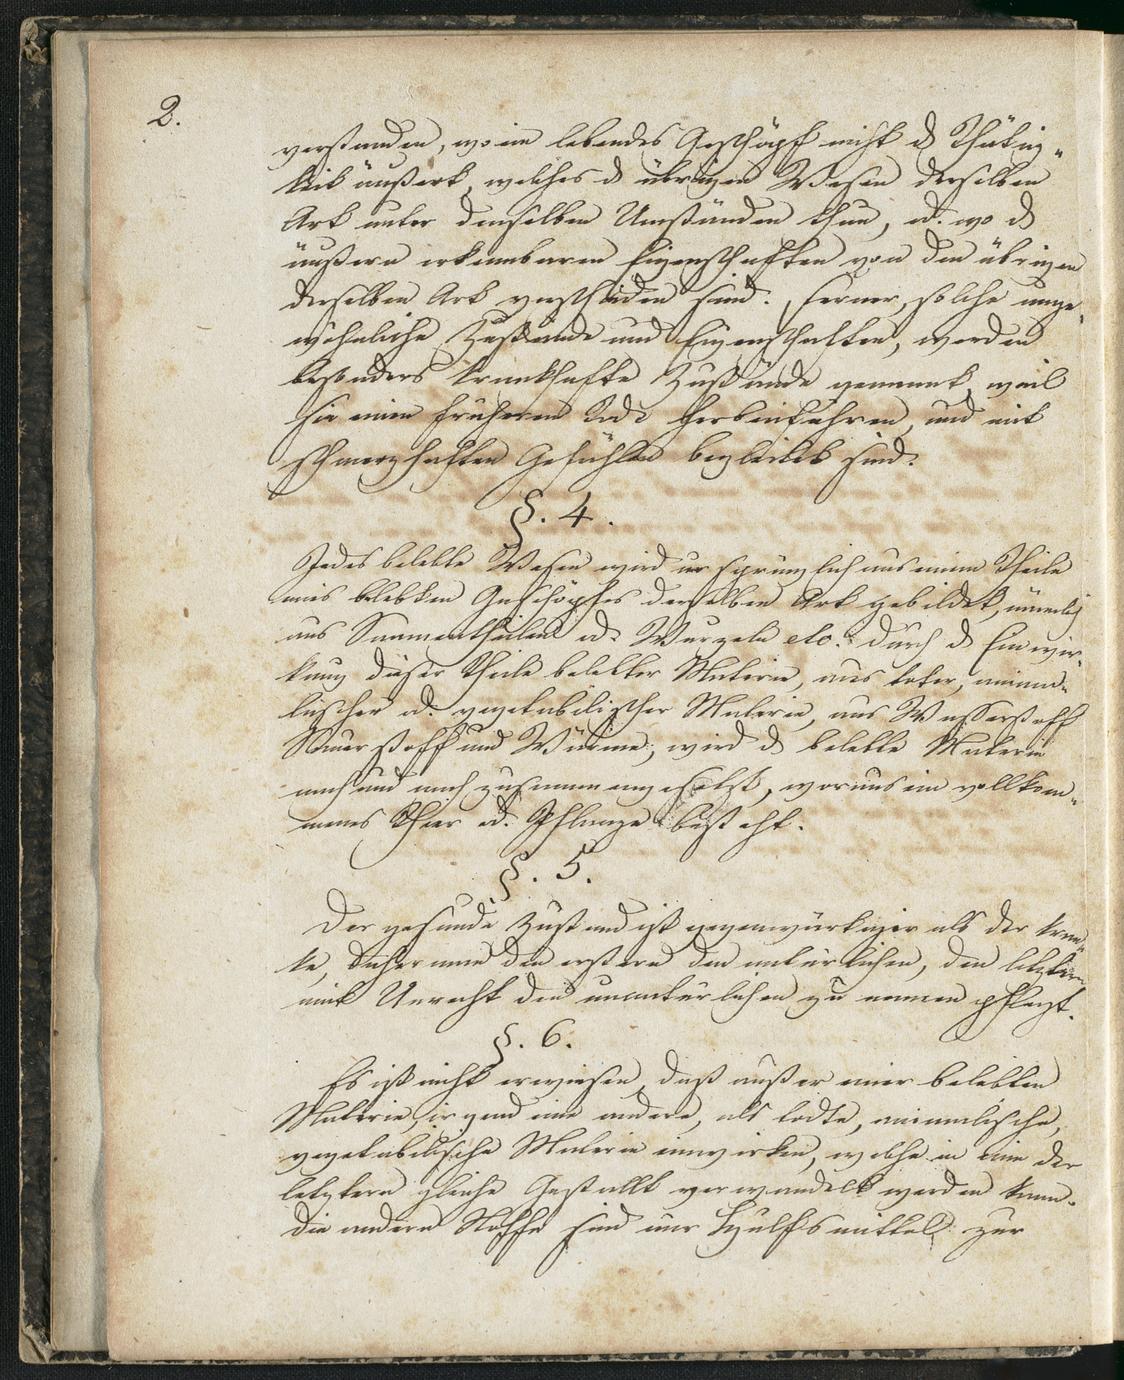 2.
verstanden, wo ein lebendes Geschöpf nicht d Thätig„
keit äußert, welches d übrigen Wesen derselben
Art unter denselben Umständen thun, od. wo d
äußern erkennbaren Eigenschaften von den übrigen
derselben Art verschieden sind. Ferner, solche unge„
wöhnliche Zustände und Eigenschaften, werden
besonders krankhafte Zustände genannt, weil
sie einen früheren Tod herbeiführen, und mit
schmerzhaften Gefühlen begleitet sind.
§. 4.
Jedes belebte Wesen wird ursprünglich aus einem Theile
eines belebten Geschöpfes derselben Art gebildet, nämlich
aus Saamentheilen od. Wurzeln etc. durch d Einwir„
kung dieser Theile belebter Materie, aus toter, anima„
lischer od. vegetabilischer Materie, aus Wasserstoff
Sauerstoff und Wärme, wird d belebte Materie
nach und nach zusammengesetzt, woraus ein vollkom„
menes Thier od. Pflanze besteht.
§. 5.
Der gesunde Zustand ist gegenwärtiger als der kran„
ke, daher man den erstern den natürlichen, den letztern
mit Unrecht den unnatürlichen zu nennen pflegt.
§. 6.
Es ist nicht erwiesen, daß außer einer belebten
Materie, irgend eine andere, als todte, animalische,
vegetabilische Materie einwirken, welche in eine der
letztern gleiche Gestallt verwandelt werden kann.
die andern Stoffe sind nur Hülfsmittel zur